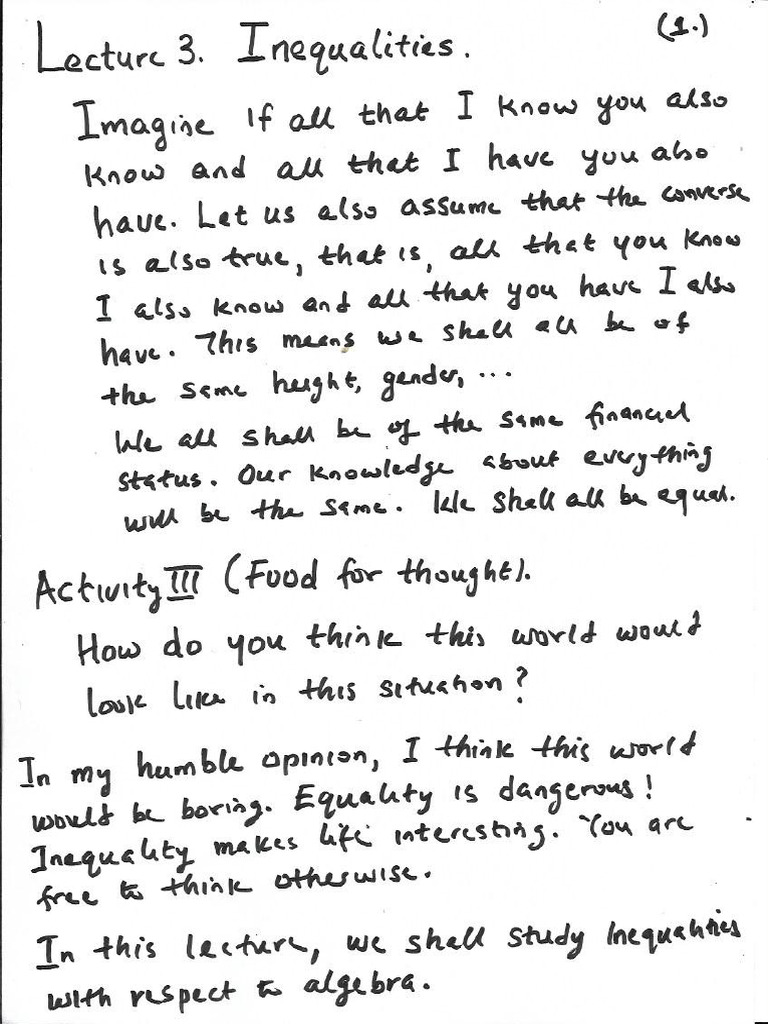 (1.)
Lecture 3. Inequalities.
Imagine if all that I know you also
know and all that I have you also
have. Let us also assume that the converse
is also true, that is, all that you know
I also know and all that you have I also
have. This means we shall all be of
the same height, gender, ...
We all shall be of the same financial
status. Our knowledge about everything
will be the same. We shall all be equal.
Activity III (Food for thought).
How do you think this world would
look like in this situation?
In my humble opinion, I think this world
would be boring. Equality is dangerous!
Inequality makes life interesting. You are
free to think otherwise.
In this lecture, we shall study inequalities
with respect to algebra.